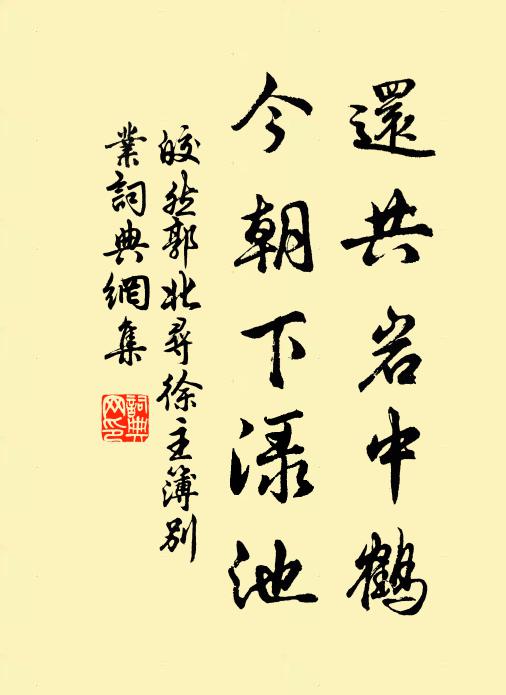 還共岩中鶴
今朝下渌池
皎然郭北尋徐主簿別
業詞典網集
詞典
网印